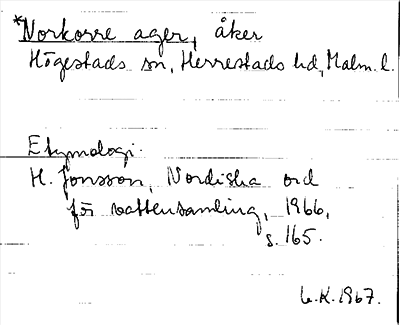 *Norkorre ager, åker
Högestads sn, Herrestads hd, Malm. l.
Etymologi.
H. Jonsson, Nordiska ord
för vattensamling, 1966,
s. 165.
L.K. 1967.